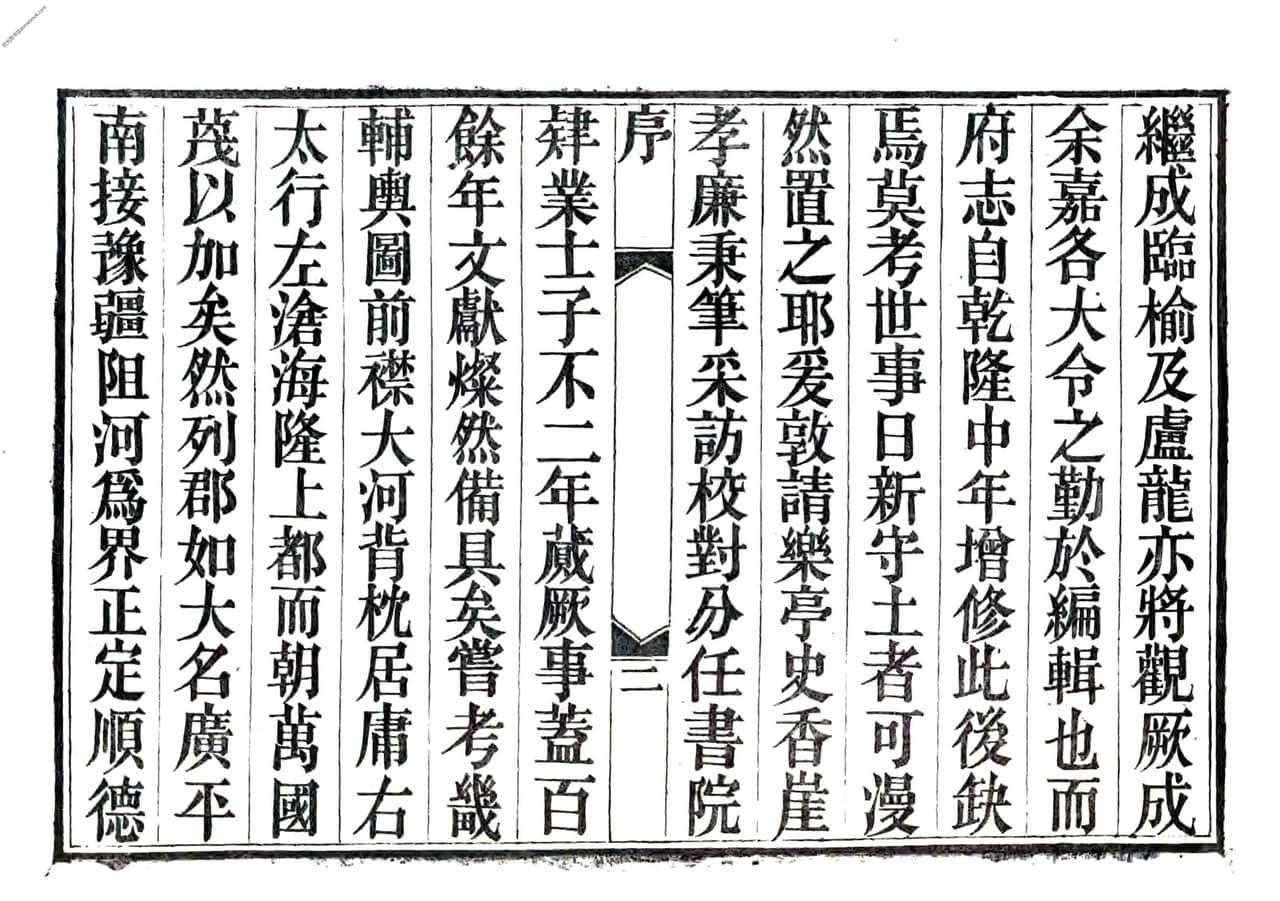 繼成臨榆及盧龍亦將觀厥成
余嘉各大令之勤於編輯也而
府志自乾隆中年增修此後缺
焉莫考世事日新守土者可漫
然置之耶爰敦請樂亭史香崖
孝廉秉筆采訪校對分任書院
序
二
肄業士子不二年蕆厥事蓋百
餘年文獻燦然備具矣嘗考畿
輔輿圖前襟大河背枕居庸右
太行左滄海隆上都而朝萬國
茂以加矣然列郡如大名廣平
南接豫疆阻河爲界正定順德